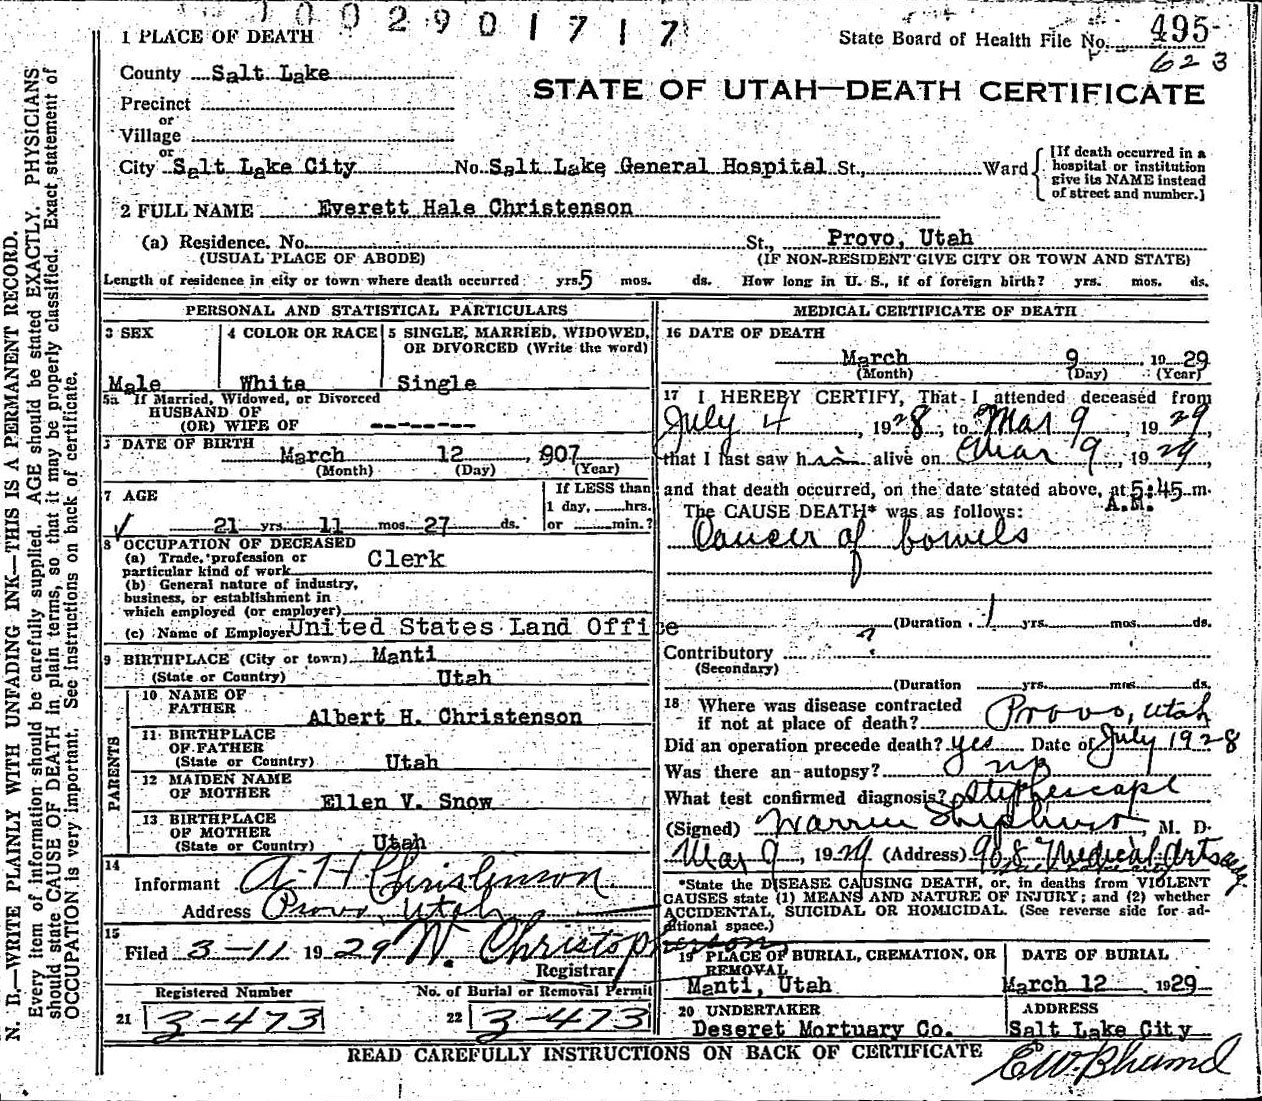 1002901717
1 PLACE OF DEATH
State Board of Health File No. 495
623
County Salt Lake
STATE OF UTAH—DEATH CERTIFICATE
Precinct
or
Village
or
City Salt Lake City No. Salt Lake General Hospital St., Ward
[If death occurred in a
hospital or institution
give its NAME instead
of street and number.]
2 FULL NAME Everett Hale Christenson
(a) Residence. No. St., Provo, Utah
(USUAL PLACE OF ABODE) (IF NON-RESIDENT GIVE CITY OR TOWN AND STATE)
Length of residence in city or town where death occurred yrs. 5 mos. ds. How long in U. S., if of foreign birth? yrs. mos. ds.
PERSONAL AND STATISTICAL PARTICULARS
3 SEX 4 COLOR OR RACE 5 SINGLE, MARRIED, WIDOWED,
OR DIVORCED (Write the word)
Male White Single
5a If Married, Widowed, or Divorced
HUSBAND OF
(OR) WIFE OF -------
DATE OF BIRTH
March 12, 907
(Month) (Day) (Year)
7 AGE If LESS than
1 day, hrs.
21 yrs. 11 mos. 27 ds. or min.?
8 OCCUPATION OF DECEASED
(a) Trade, profession or
particular kind of work Clerk
(b) General nature of industry,
business, or establishment in
which employed (or employer)
(c) Name of Employer United States Land Office
9 BIRTHPLACE (City or town) Manti
(State or Country) Utah
PARENTS
10 NAME OF
FATHER Albert H. Christenson
11 BIRTHPLACE
OF FATHER
(State or Country) Utah
12 MAIDEN NAME
OF MOTHER Ellen V. Snow
13 BIRTHPLACE
OF MOTHER
(State or Country) Utah
14
Informant A. H. Christenson
Address Provo, Utah
15
Filed 3-11 1929 N. Christopherson
Registrar
Registered Number No. of Burial or Removal Permit
21 3-473 22 3-473
MEDICAL CERTIFICATE OF DEATH
16 DATE OF DEATH
March 9 1929
(Month) (Day) (Year)
17 I HEREBY CERTIFY, That I attended deceased from
July 4, 1928, to Mar 9 1929
that I last saw him alive on Mar 9, 1929,
and that death occurred, on the date stated above, at 5:45 m.
A.M.
The CAUSE DEATH* was as follows:
Cancer of bowels
(Duration 1 yrs. mos. ds.
Contributory ?
(Secondary)
(Duration yrs. mos. ds.
18 Where was disease contracted
if not at place of death? Provo, Utah
Did an operation precede death? yes Date of July 1928
Was there an autopsy? no
What test confirmed diagnosis?
(Signed) Warren Shepherd, M. D.
Mar 9, 1929 (Address) 908 Medical Arts
*State the DISEASE CAUSING DEATH, or, in deaths from VIOLENT
CAUSES state (1) MEANS AND NATURE OF INJURY; and (2) whether
ACCIDENTAL, SUICIDAL OR HOMICIDAL. (See reverse side for ad-
ditional space.)
19 PLACE OF BURIAL, CREMATION, OR
REMOVAL
Manti, Utah
DATE OF BURIAL
March 12 1929
20 UNDERTAKER
Deseret Mortuary Co.
ADDRESS
Salt Lake City
READ CAREFULLY INSTRUCTIONS ON BACK OF CERTIFICATE
N. B.—WRITE PLAINLY WITH UNFADING INK—THIS IS A PERMANENT RECORD.
Every item of information should be carefully supplied. AGE should be stated EXACTLY. PHYSICIANS
should state CAUSE OF DEATH in plain terms, so that it may be properly classified. Exact statement of
OCCUPATION is very important. See instructions on back of certificate.